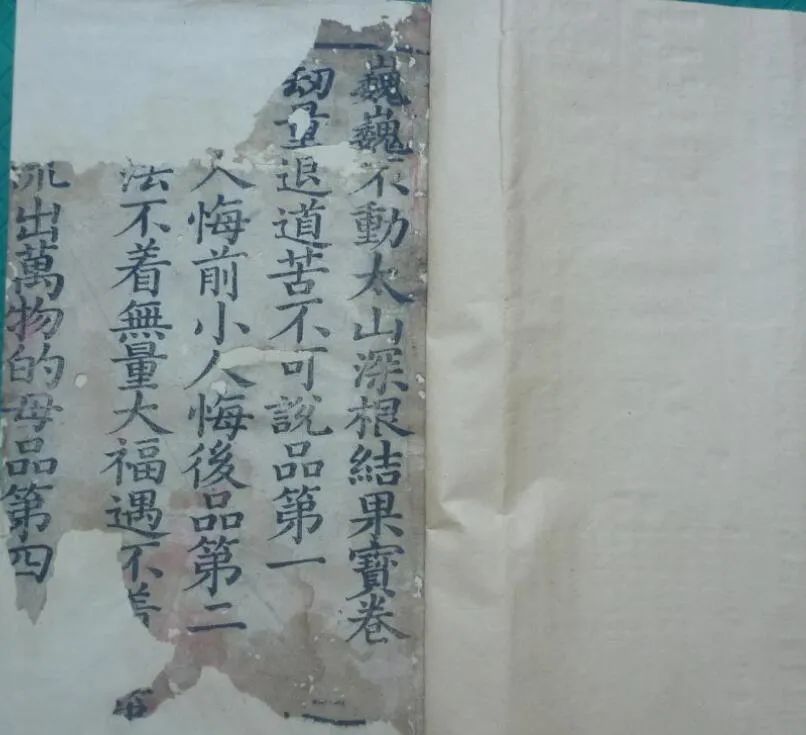 巍巍不動太山深根結果寶卷
劫量退道苦不可說品第一
人悔前小人悔後品第二
法不着無量大福遇不着
流出萬物的母品第四